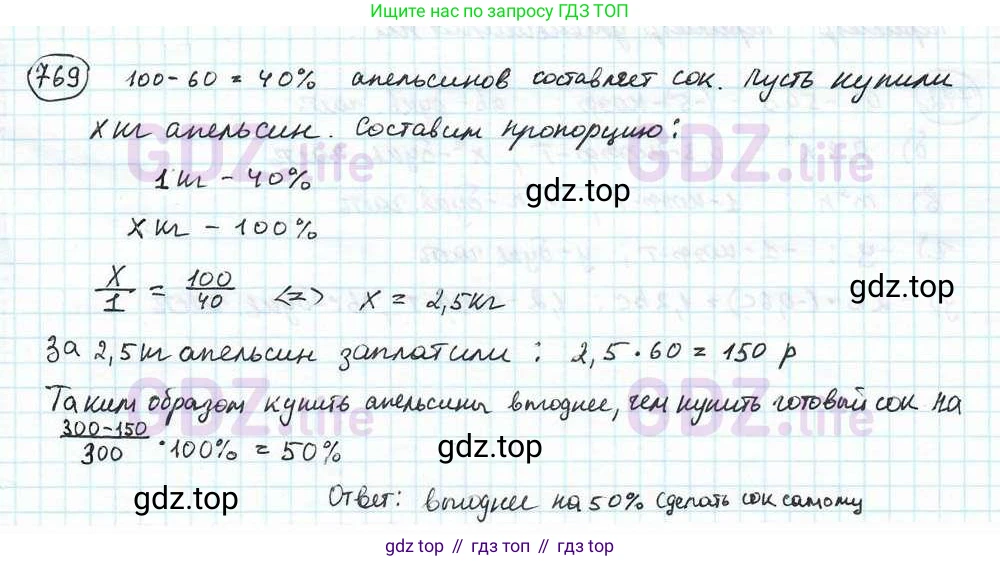 Ищите нас по запросу ГДЗ ТОП
769 100-60=40% апельсинов составляет сок. Пусть купили
x кг апельсин. Составим пропорцию:
GDZ.life GDZ.life
1 кг - 40%
gdz.top
x кг - 100%
x/1 = 100/40 <=> x = 2,5 кг
gdz.top
За 2,5 кг апельсин заплатили: 2,5·60=150 р
GDZ.life GDZ.life
Таким образом купить апельсины выгоднее, чем купить готовый сок на
300-150/300 ·100% = 50%
gdz.top
gdz.top
Ответ: выгоднее на 50% сделать сок самому
gdz top // гдз топ // gdz.top